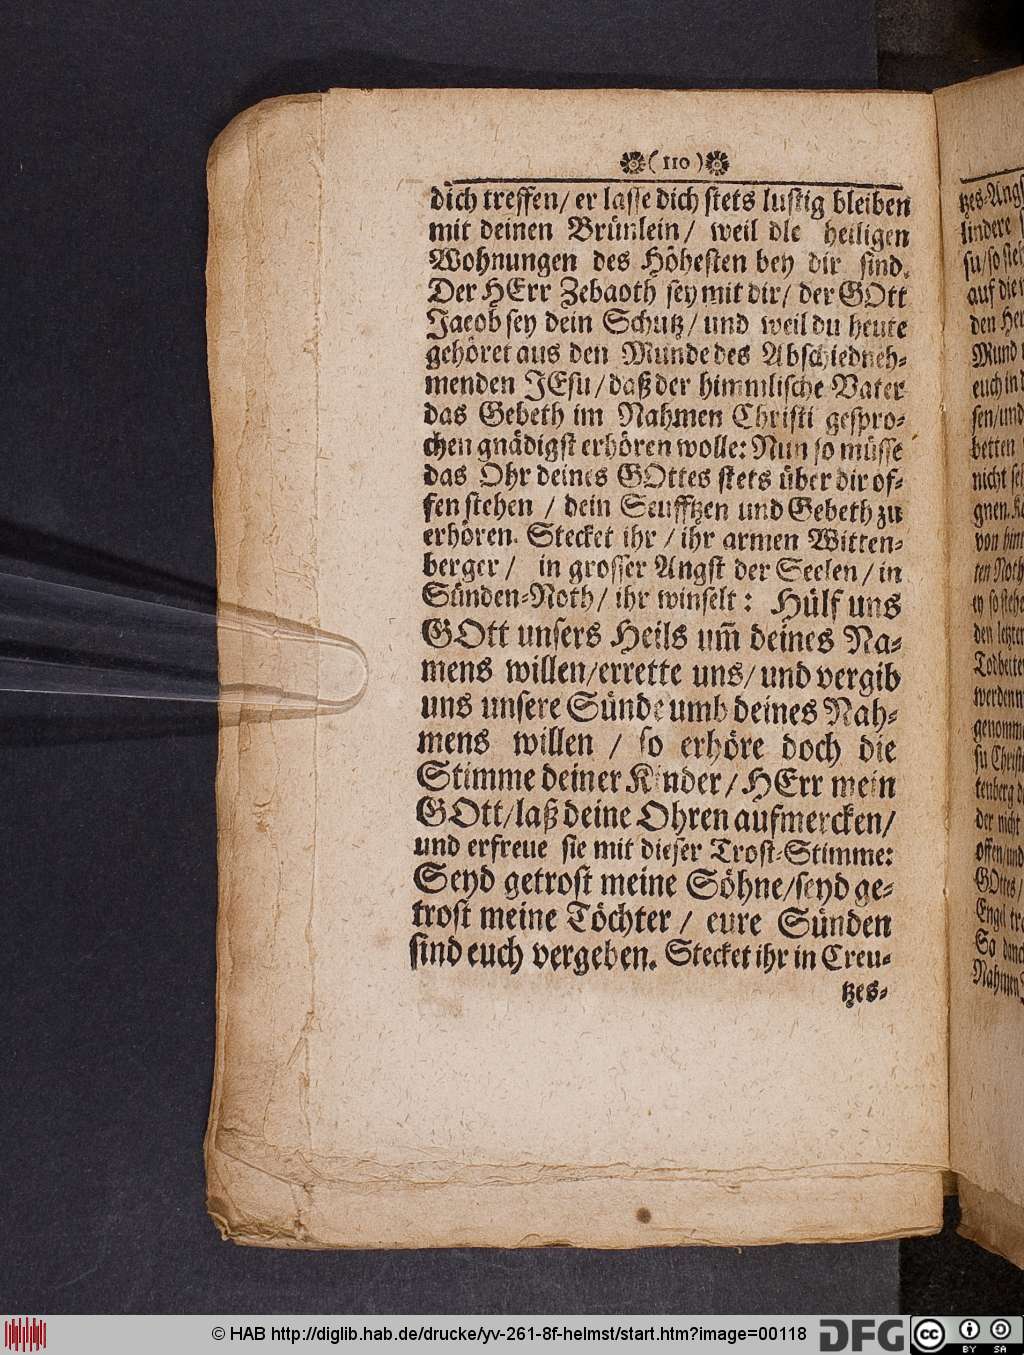 ( 110 )
dich treffen/ er lasse dich stets lustig bleiben
mit deinen Brünlein/ weil die heiligen
Wohnungen des Höhesten bey dir sind.
Der HErr Zebaoth sey mit dir/ der GOtt
Jacob sey dein Schutz/ und weil du heute
gehöret aus den Munde des Abschiedneh-
menden JEsu/ daß der himmlische Vater
das Gebeth im Nahmen Christi gespro-
chen gnädigst erhören wolle: Nun so müsse
das Ohr deines GOttes stets über dir of-
fen stehen / dein Seufftzen und Gebeth zu
erhören. Stecket ihr / ihr armen Witten-
berger / in grosser Angst der Seelen/ in
Sünden-Noth/ ihr winselt: Hülf uns
GOtt unsers Heils um̃ deines Na-
mens willen/errette uns/ und vergib
uns unsere Sünde umb deines Nah-
mens willen / so erhöre doch die
Stimme deiner Kinder/ HErr mein
GOtt/laß deine Ohren aufmercken/
und erfreue sie mit dieser Trost-Stimme:
Seyd getrost meine Söhne/seyd ge-
trost meine Töchter/ eure Sünden
sind euch vergeben. Stecket ihr in Creu-
tzes-
tzes-Angst
lindere
su/so steh
auf die
den He
Mund
euch in d
sen/und
betten
nicht se
gnen.
von hin
ten Noth
ty so stehe
den letzten
Todbette
werden
genomm
su Christ
tenberg d
der nicht
offen/und
GOttes/
Engel tr
So danc
Nahmen
© HAB http://diglib.hab.de/drucke/yv-261-8f-helmst/start.htm?image=00118
DFG
cc BY SA